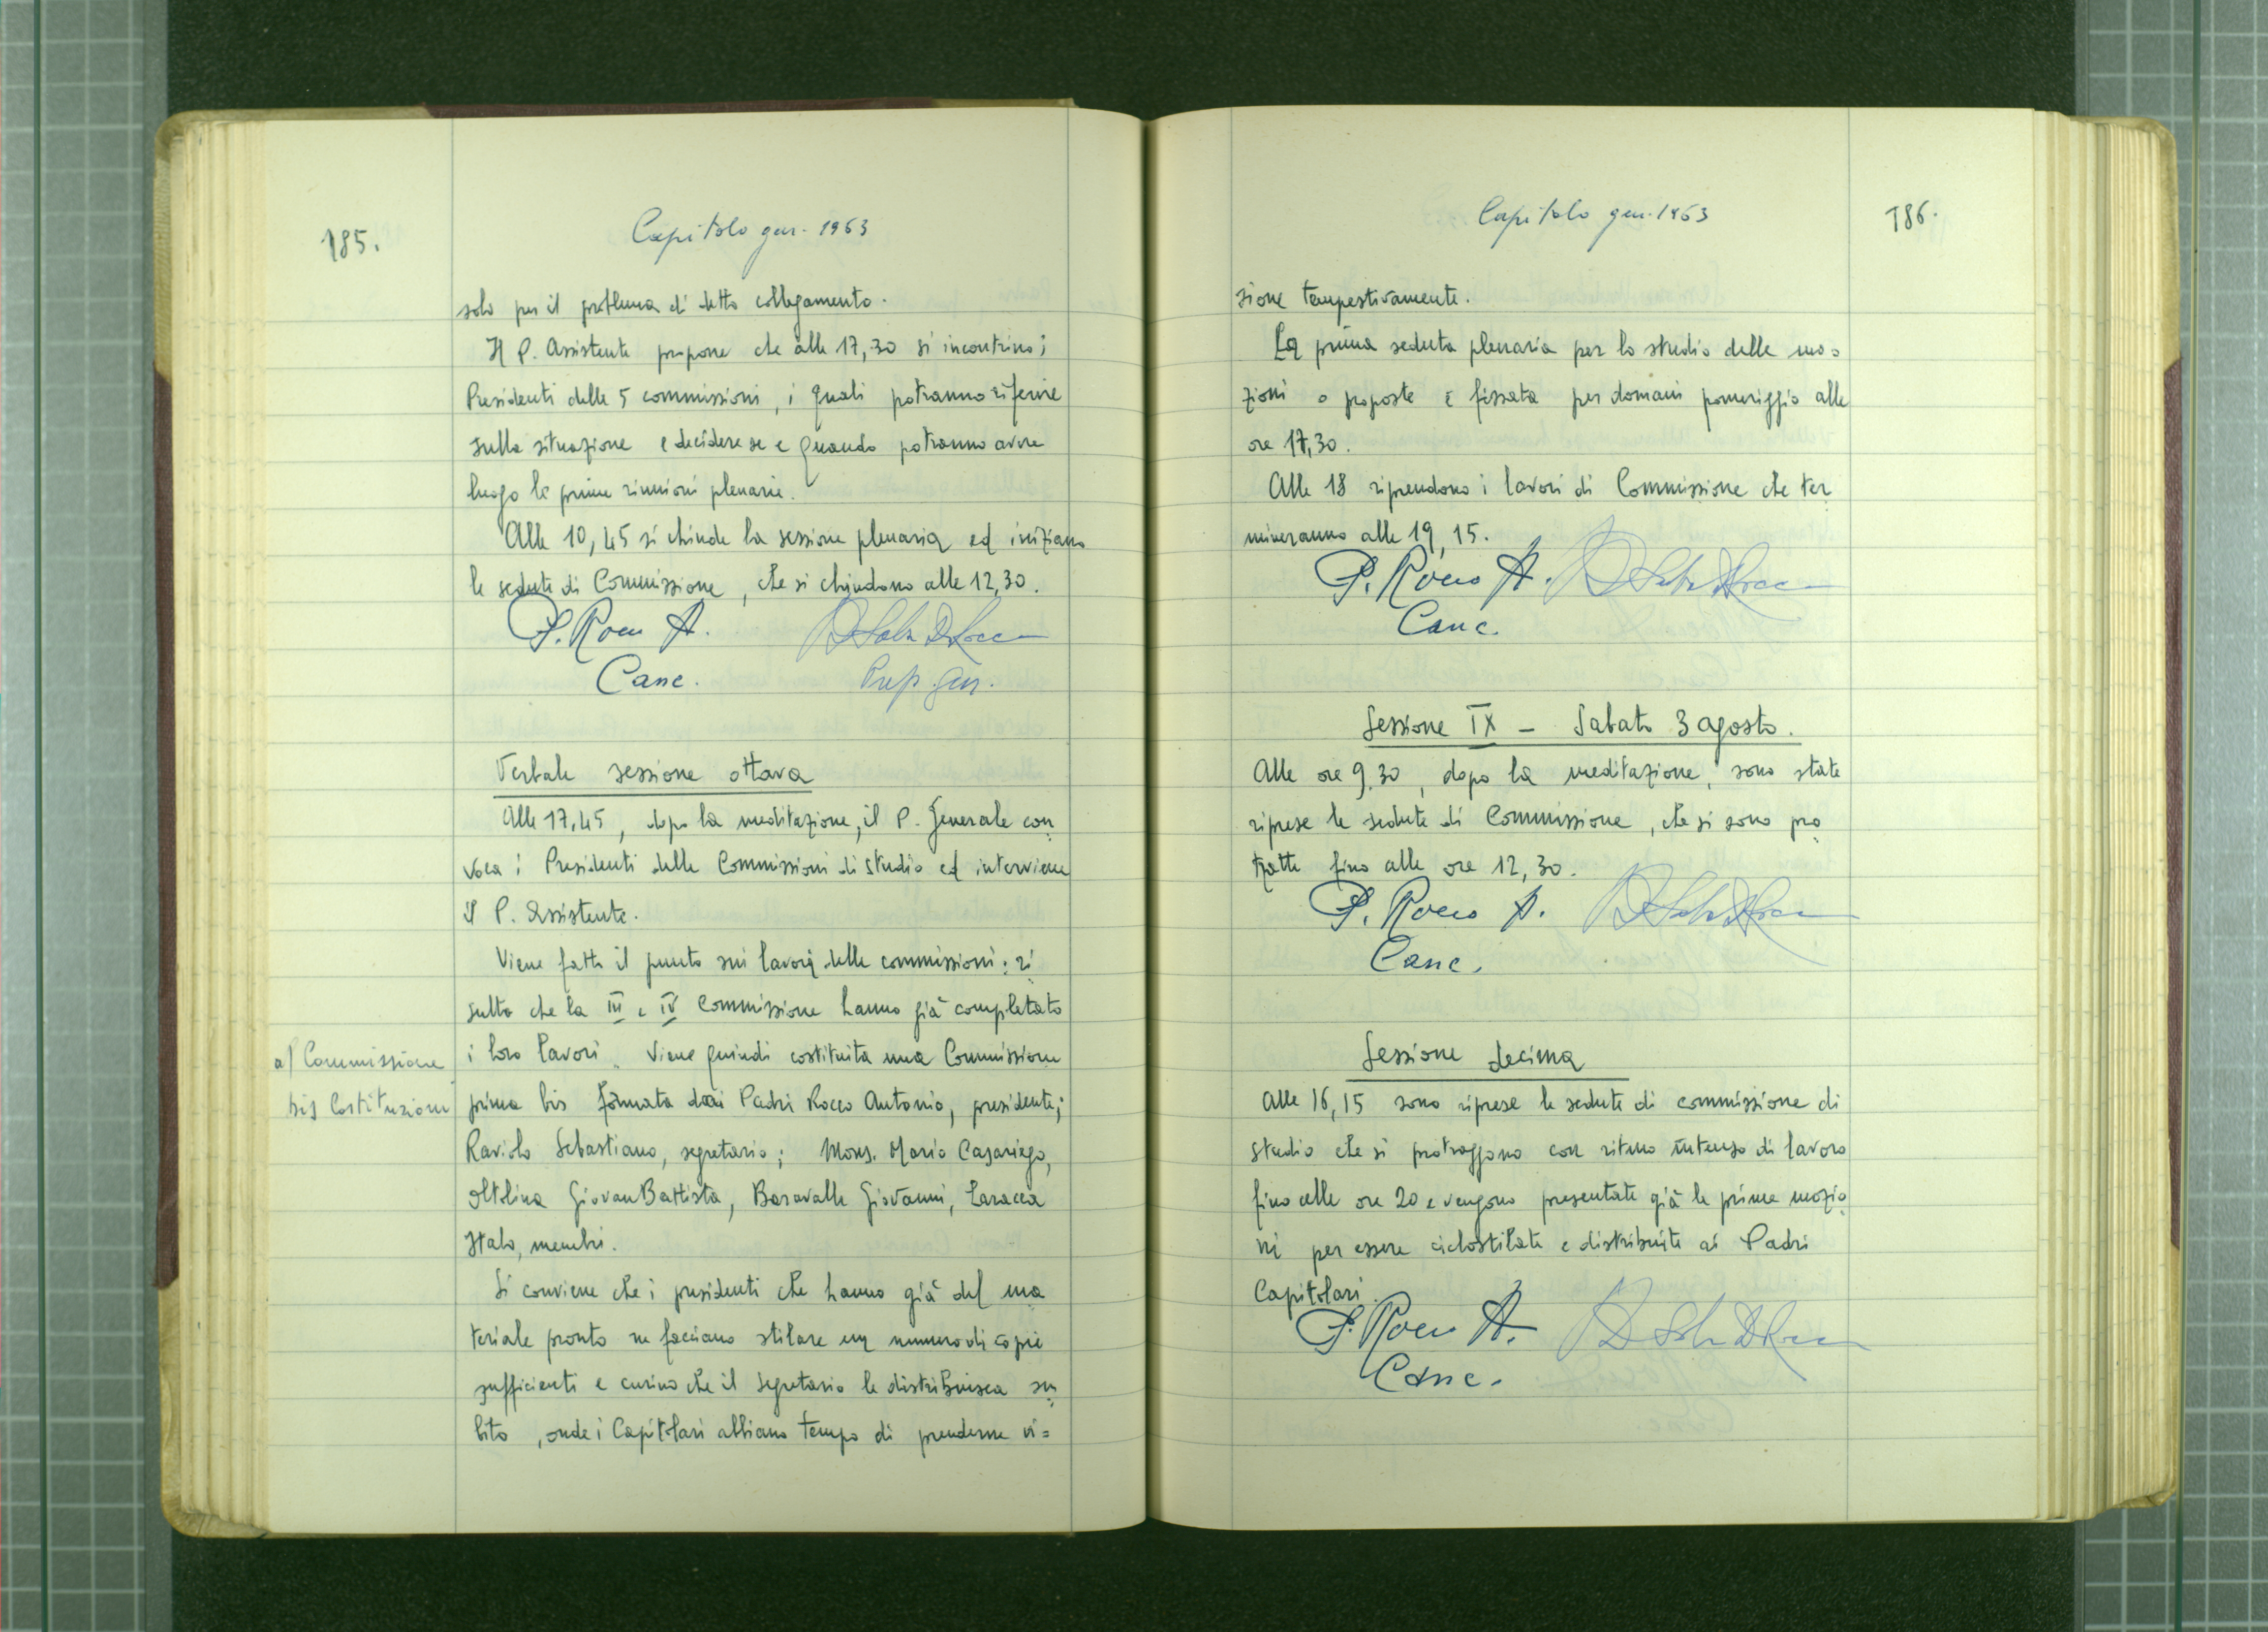 185.
Capitolo gen. 1963
solo per il problema di detto collegamento.
Il P. Assistente propone che alle 17,30 si incontrino i
Presidenti delle 5 commissioni, i quali potranno riferire
sulla situazione e decidere se e quando potranno avere
luogo le prime riunioni plenarie.
Alle 10,45 si chiude la sessione plenaria ed iniziano
le sedute di Commissione, che si chiudono alle 12,30.
P. Rocco A.
Canc.
Prep. gen.
Verbale sessione ottava
Alle 17,45, dopo la meditazione, il P. Generale con
voca i Presidenti delle Commissioni di studio ed interviene
il P. Assistente.
Viene fatto il punto sui lavori delle commissioni: ri
sulta che la III e IV Commissione hanno già completato
i loro lavori. Viene quindi costituita una Commissione
a) Commissione
bis Costituzioni
prima bis formata dai Padri Rocco Antonio, presidente;
Raviolo Sebastiano, segretario; Mons. Mario Casariego,
Oltolina GiovanBattista, Baravalle Giovanni, Laracca
Italo, membri.
Si conviene che i presidenti che hanno già del ma
teriale pronto ne facciano stilare un numero di copie
sufficienti e curino che il segretario le distribuisca su
bito, onde i Capitolari abbiano tempo di prenderne vi=
Capitolo gen. 1963
186.
sione tempestivamente.
La prima seduta plenaria per lo studio delle mo=
zioni o proposte è fissata per domani pomeriggio alle
ore 17,30.
Alle 18 riprendono i lavori di Commissione che ter
mineranno alle 19,15.
P. Rocco A.
Canc.
Sessione IX - Sabato 3 agosto.
Alle ore 9.30, dopo la meditazione, sono state
riprese le sedute di Commissione, che si sono pro
tratte fino alle ore 12,30.
P. Rocco A.
Canc.
Sessione decima
Alle 16,15 sono riprese le sedute di commissione di
studio che si protraggono con ritmo intenso di lavoro
fino alle ore 20 e vengono presentate già le prime mozio
ni per essere ciclostilate e distribuite ai Padri
Capitolari.
P. Rocco A.
Canc.